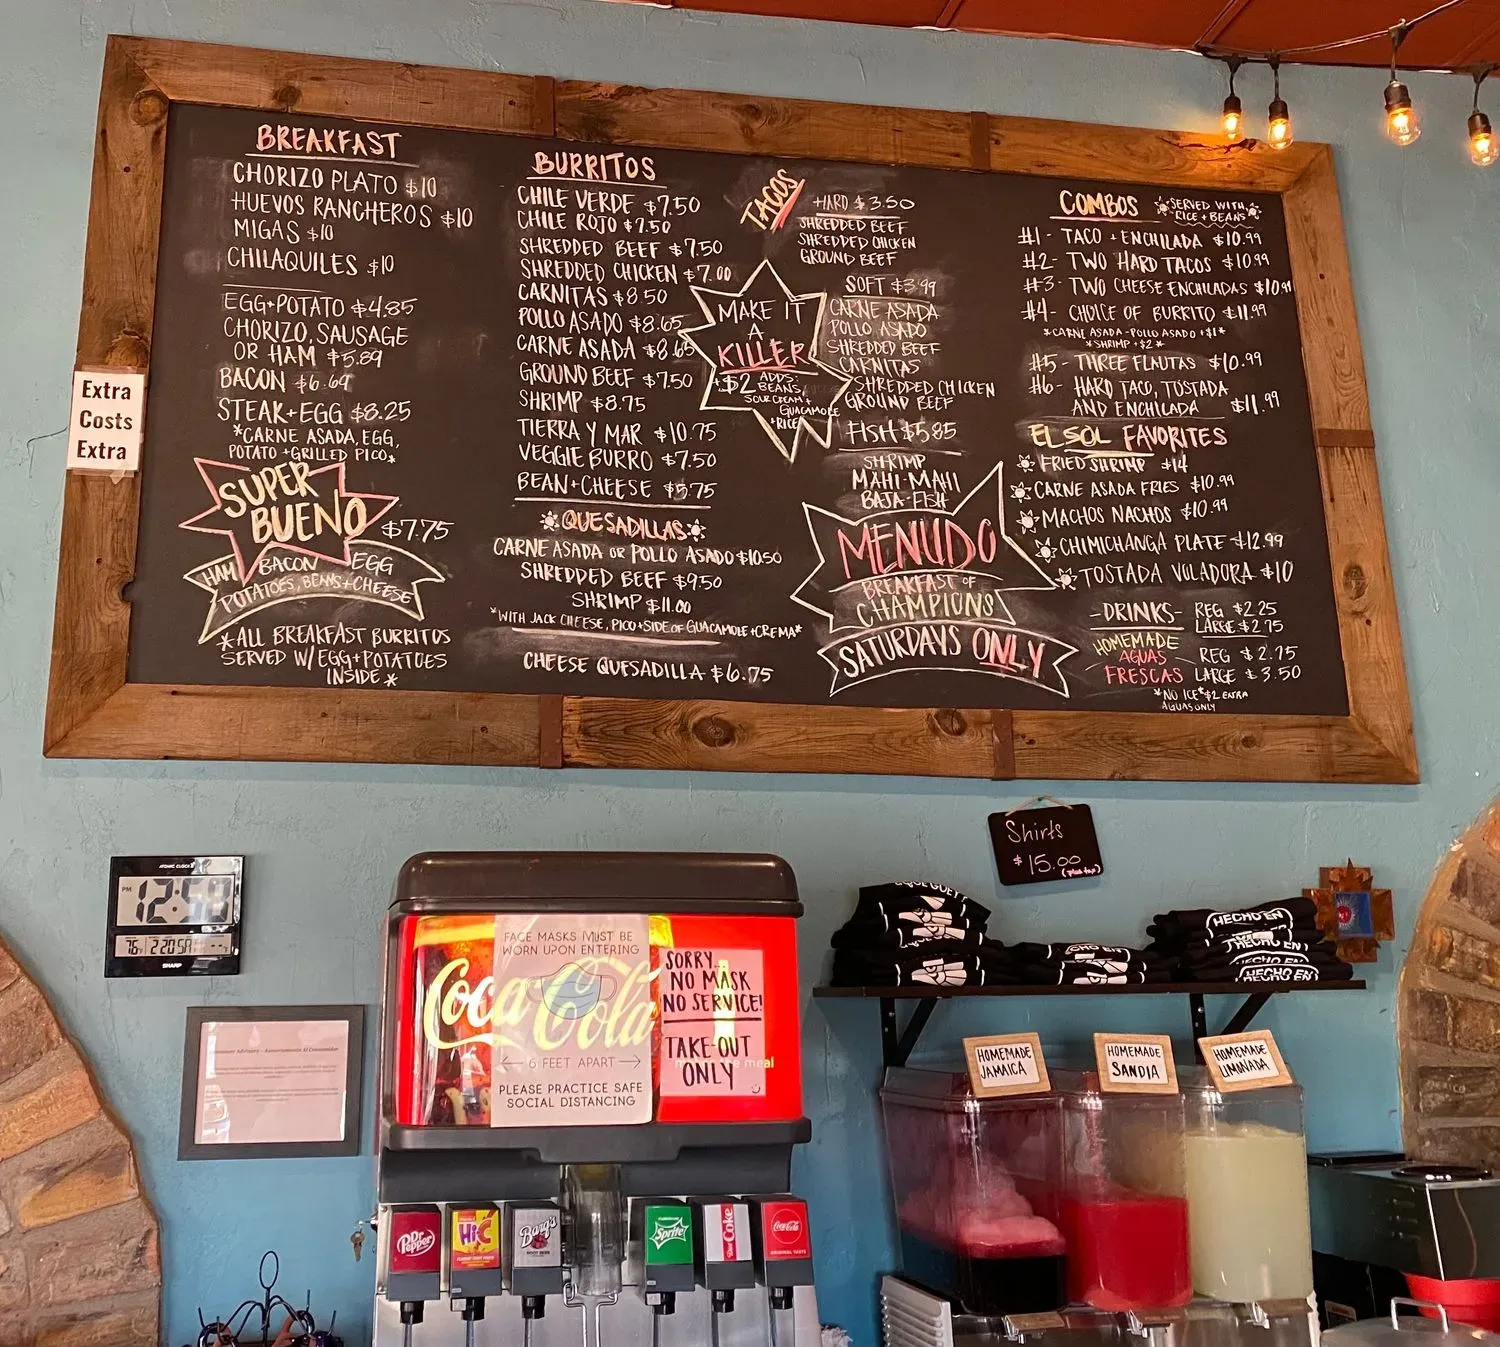 BREAKFAST
CHORIZO PLATO $10
HUEVOS RANCHEROS $10
MIGAS $10
CHILAQUILES $10
EGG+POTATO $4.85
CHORIZO, SAUSAGE
OR HAM $5.89
BACON $6.69
STEAK+EGG $8.25
*CARNE ASADA, EGG,
POTATO +GRILLED PICO*
SUPER
BUENO
$7.75
HAM BACON EGG
POTATOES, BEANS+CHEESE
*ALL BREAKFAST BURRITOS
SERVED W/EGG+POTATOES
INSIDE*
BURRITOS
CHILE VERDE $7.50
CHILE ROJO $7.50
SHREDDED BEEF $7.50
SHREDDED CHICKEN $7.00
CARNITAS $8.50
POLLO ASADO $8.65
CARNE ASADA $8.65
GROUND BEEF $7.50
SHRIMP $8.75
TIERRA Y MAR $10.75
VEGGIE BURRO $7.50
BEAN+CHEESE $5.75
QUESADILLAS
CARNE ASADA OR POLLO ASADO $10.50
SHREDDED BEEF $9.50
SHRIMP $11.00
*WITH JACK CHEESE, PICO+SIDE OF GUACAMOLE+CREMA*
CHEESE QUESADILLA $6.75
TACOS
HARD $3.50
SHREDDED BEEF
SHREDDED CHICKEN
GROUND BEEF
SOFT $3.99
CARNE ASADA
POLLO ASADO
SHREDDED BEEF
CARNITAS
SHREDDED CHICKEN
GROUND BEEF
FISH $5.85
SHRIMP
MAHI-MAHI
BAJA-FISH
MAKE IT
A
KILLER
+$2 ADDS:
BEANS,
SOUR CREAM +
GUACAMOLE
+RICE
MENUDO
BREAKFAST OF
CHAMPIONS
SATURDAYS ONLY
COMBOS
SERVED WITH
RICE + BEANS
#1- TACO + ENCHILADA $10.99
#2- TWO HARD TACOS $10.99
#3- TWO CHEESE ENCHILADAS $10.99
#4- CHOICE OF BURRITO $11.99
*CARNE ASADA-POLLO ASADO +$1*
*SHRIMP +$2*
#5- THREE FLAUTAS $10.99
#6- HARD TACO, TOSTADA
AND ENCHILADA $11.99
EL SOL FAVORITES
FRIED SHRIMP $14
CARNE ASADA FRIES $10.99
MACHOS NACHOS $10.99
CHIMICHANGA PLATE $12.99
TOSTADA VOLADORA $10
-DRINKS- REG $2.25
LARGE $2.75
HOMEMADE
AGUAS
FRESCAS
REG $2.75
LARGE $3.50
*NO ICE*$2 EXTRA
AGUAS ONLY
Extra
Costs
Extra
Shirts
$15.00
(plus tax)
ATOMIC CLOCK
PM
12:58
76
SHARP
FACE MASKS MUST BE
WORN UPON ENTERING
6 FEET APART
PLEASE PRACTICE SAFE
SOCIAL DISTANCING
Coca-Cola
SORRY..
NO MASK
NO SERVICE!
TAKE-OUT
ONLY
meal
HECHO EN
HECHO EN
HECHO EN
HECHO EN
HOMEMADE
JAMAICA
HOMEMADE
SANDIA
HOMEMADE
LIMONADA
Dr Pepper
Hi-C
Barq's
ROOT BEER
Sprite
Diet Coke
Coca-Cola
ORIGINAL TASTE